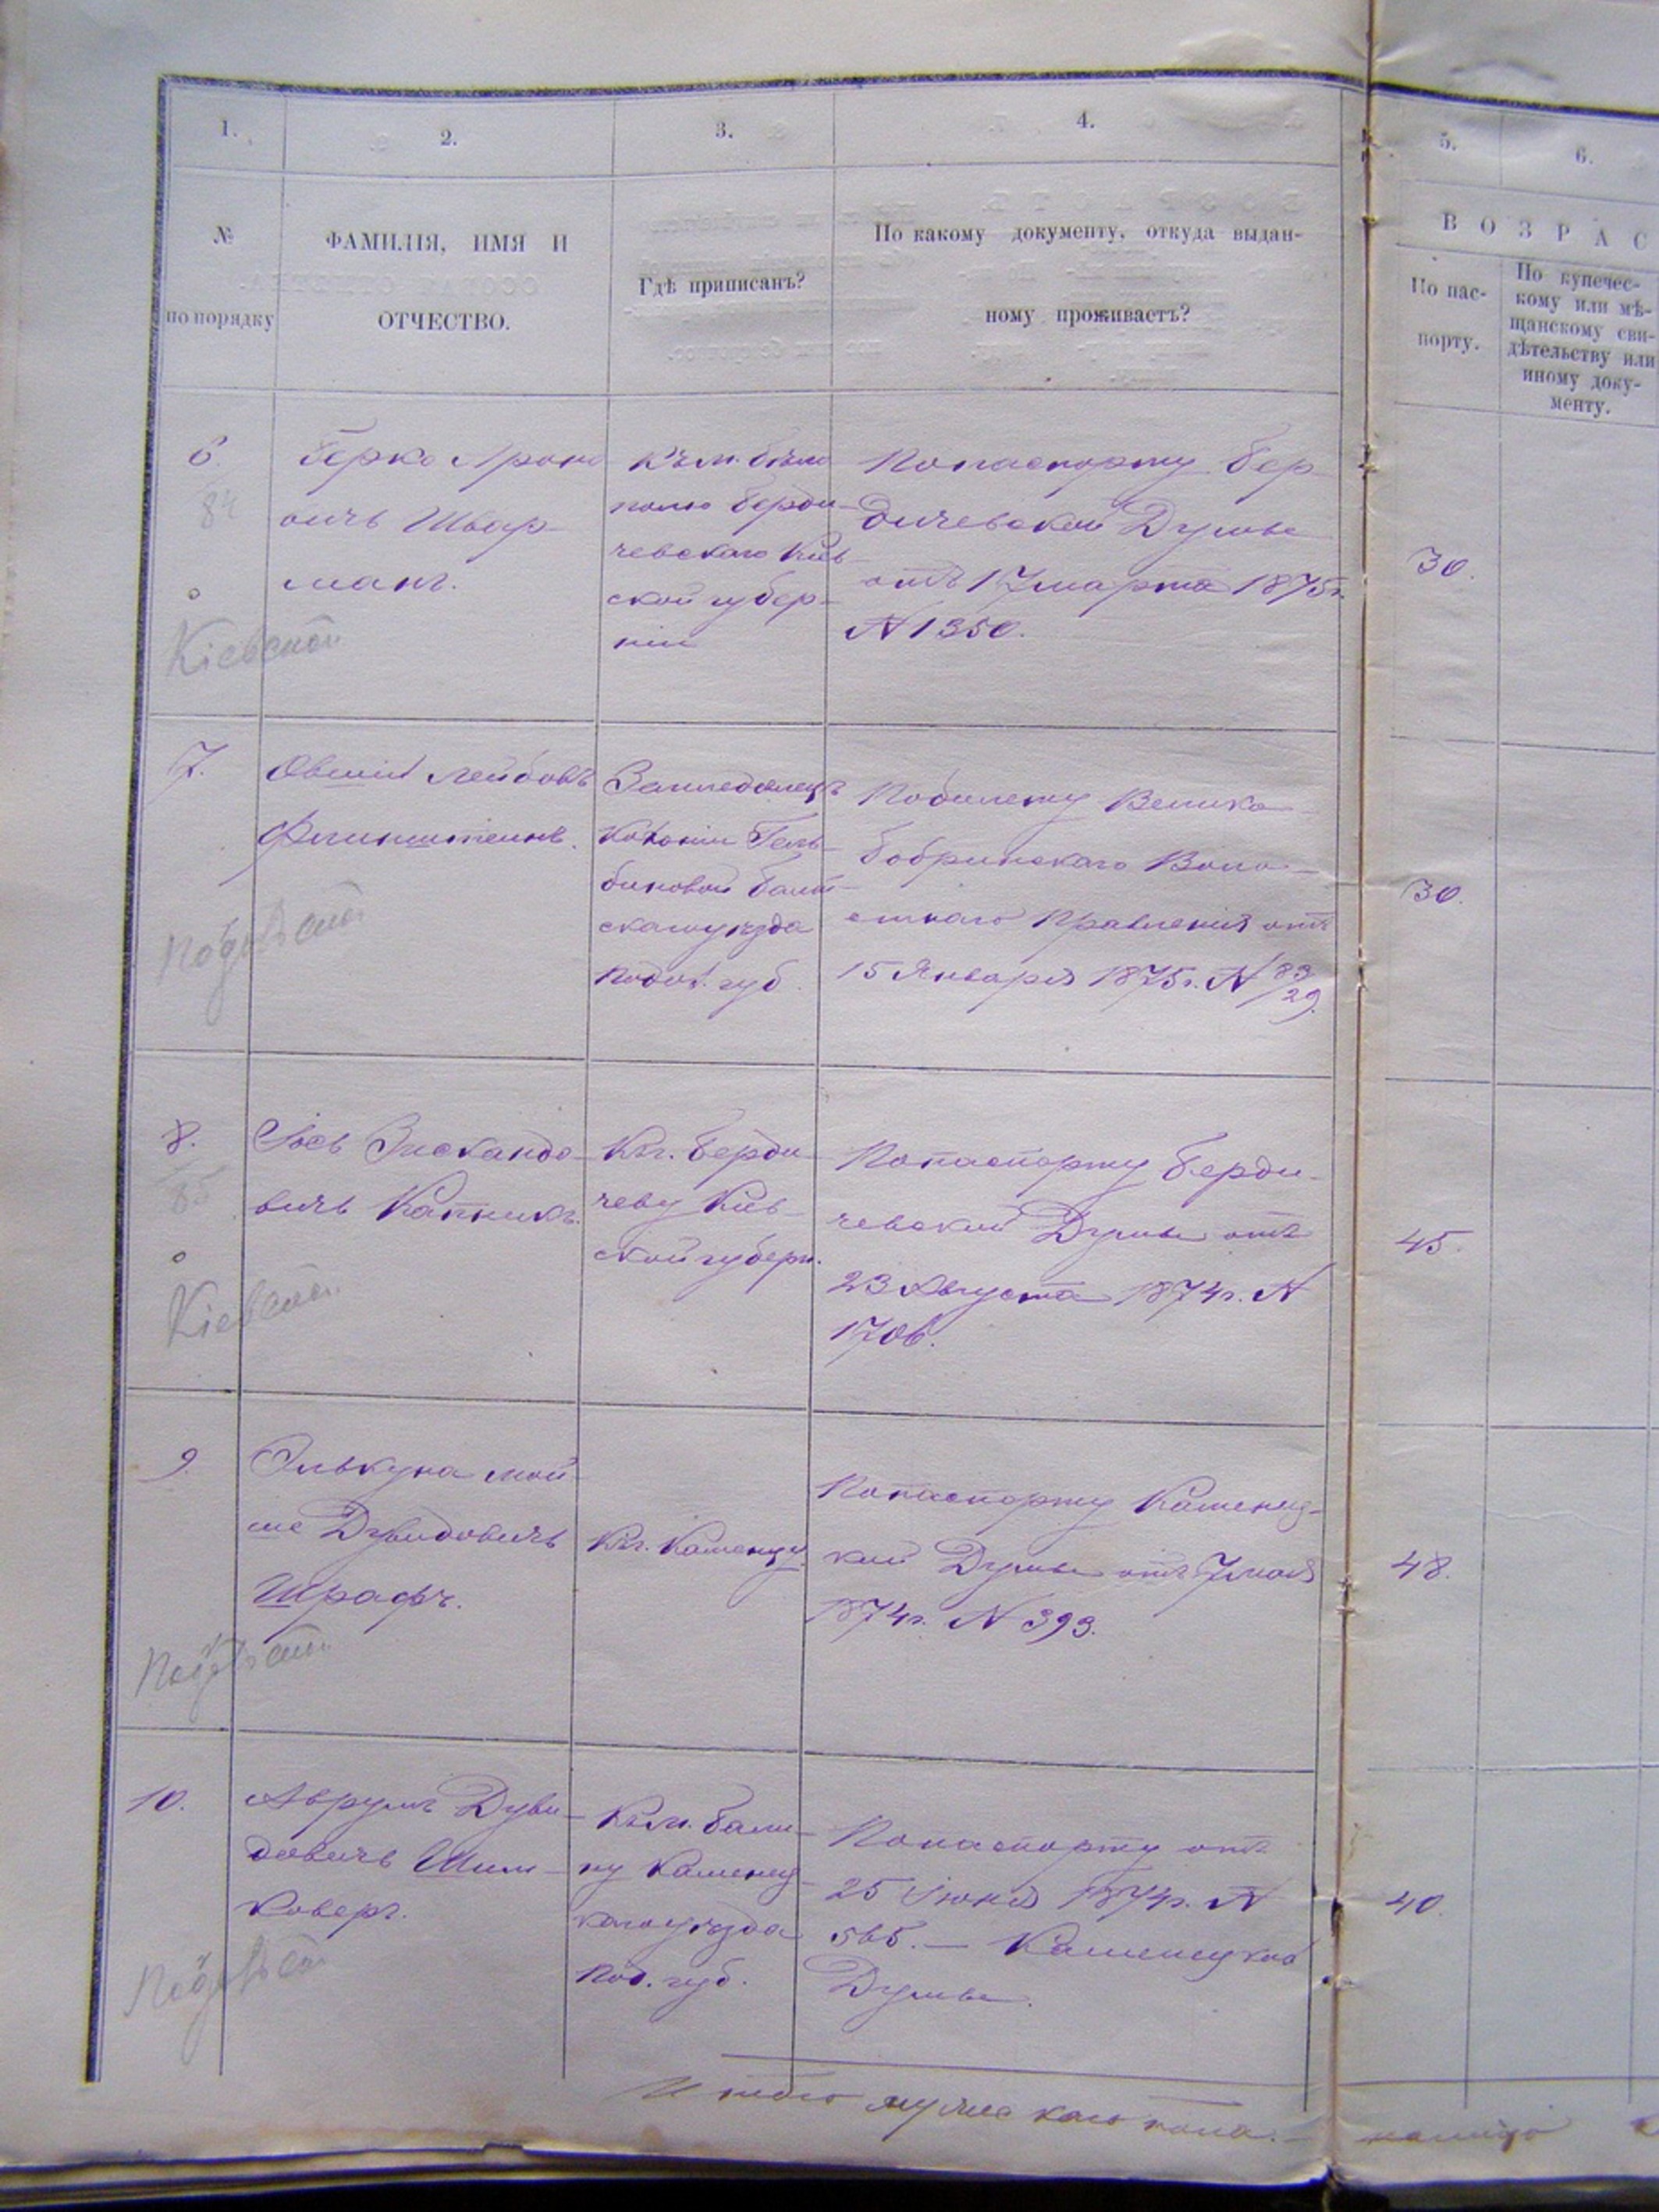 1.
2.
3.
4.
5.
6.
№
по порядку
ФАМИЛІЯ, ИМЯ И
ОТЧЕСТВО.
Гдѣ приписанъ?
По какому документу, откуда выдан-
ному проживаетъ?
ВОЗРАС
По пас-
порту.
По купечес-
кому или мѣ-
щанскому сви-
дѣтельству или
иному доку-
менту.
6.
84
Кіевской
Берко Арон
овичъ Швар-
манъ.
Къ м. Бѣло
полю Берди-
чевскаго Кіев-
ской губер-
ніи
По паспорту Бер-
дичевской Думы
отъ 17 марта 1875 г.
№ 1350.
30.
7.
Подольской
Овшій Лейбовъ
Флинштейнъ.
Землевладелецъ
Колоніи Гель-
биновой Балт-
скаго уѣзда
Подол. губ.
По билету Велико
бобринскаго Воло-
стнаго Правленія отъ
15 Января 1875 г. № 83/29.
30.
8.
85
Кіевской
Іось Зискандо-
вичъ Капникъ.
Къ г. Берди-
чеву Кіев-
ской губерн.
По паспорту Берди-
чевской Думы отъ
23 Августа 1874 г. №
1706.
45.
9.
Подольской
Элькуна Мой-
ше Дувидовичъ
Шрафъ.
Къ г. Каменцу
По паспорту Каменец-
кой Думы отъ 7 мая
1874 г. № 393.
48.
10.
Подольской
Аврумъ Дуви-
довичъ Шим-
коверъ.
Къ м. Бали-
ну Каменец-
каго уѣзда
Под. губ.
По паспорту отъ
25 Іюня 1874 г. №
565. — Каменецкой
Думы.
40.
Итого мужескаго пола. —